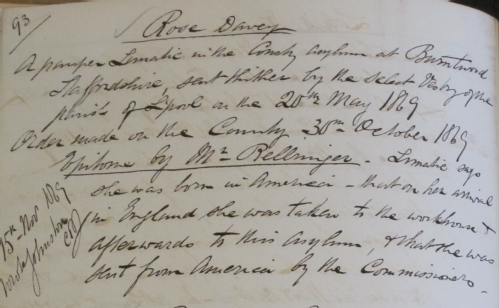 93/
Rose Davey
A pauper Lunatic in the County Asylum at Burntwood
Staffordshire, sent thither by the Select Vestry of the
parish of Lpool on the 20th May 1869
Order made on the County 30th October 1869
Epitome by Mr Bellringer. Lunatic says
she was born in America - that on her arrival
in England she was taken to the workhouse &
afterwards to this Asylum, & that she was
sent from America by the Commissioners.
15th Nov 1869
Johnston